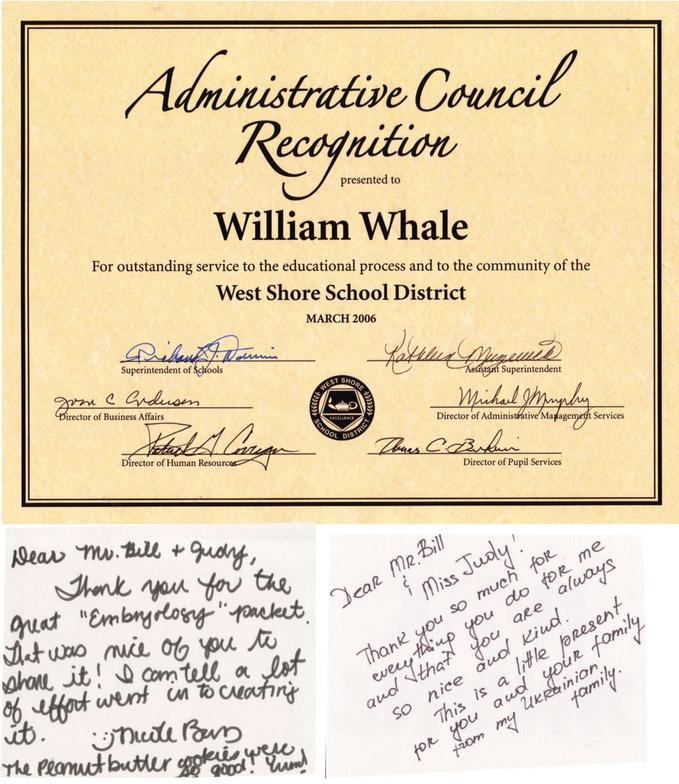 Administrative Council
Recognition
presented to
William Whale
For outstanding service to the educational process and to the community of the
West Shore School District
MARCH 2006
Superintendent of Schools
Assistant Superintendent
Director of Business Affairs
WEST SHORE
EXCELLENCE
SCHOOL DISTRICT
Michael J Murphy
Director of Administrative Management Services
Director of Human Resources
Thomas C.
Director of Pupil Services
Dear Mr. Bill + Judy,
Thank you for the
great "Embryology" packet.
That was nice of you to
share it! I can tell a lot
of effort went in to creating
it.
Nicole
The Peanutbutter cookies were
so good! Yum!
Dear Mr. Bill
& Miss Judy!
Thank you so much for
everything you do for me
and that you are always
so nice and kind.
This is a little present
for you and your family
from my Ukrainian
family.